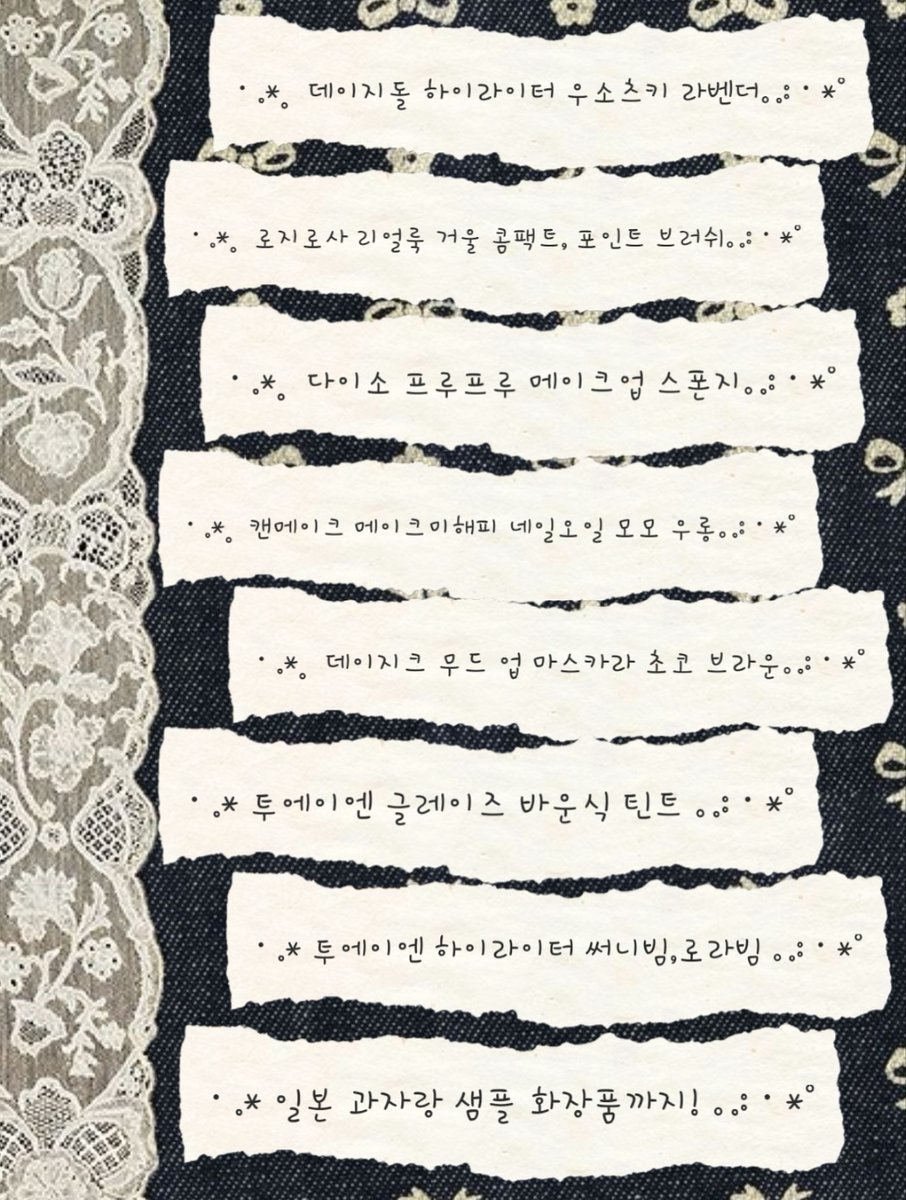 · ｡*｡ 데이지돌 하이라이터 우소츠키 라벤더｡｡: · *°
· ｡*｡ 로지로사 리얼룩 거울 콤팩트, 포인트 브러쉬｡｡: · *°
· ｡*｡ 다이소 프루프루 메이크업 스폰지｡｡: · *°
· ｡*｡ 캔메이크 메이크미해피 네일오일 모모 우롱｡｡: · *°
· ｡*｡ 데이지크 무드 업 마스카라 초코 브라운｡｡: · *°
· ｡* 투에이엔 글레이즈 바운식 틴트 ｡｡: · *°
· ｡* 투에이엔 하이라이터 써니빔,로라빔 ｡｡: · *°
· ｡* 일본 과자랑 샘플 화장품까지! ｡｡: · *°